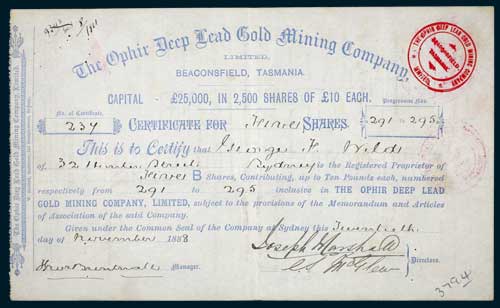 The Ophir Deep Lead Gold Mining Company,
LIMITED,
BEACONSFIELD, TASMANIA.
CAPITAL - £25,000, IN 2,500 SHARES OF £10 EACH.
No. of Certificate
Progressive Nos.
237 CERTIFICATE FOR SHARES. 291 - 295
This is to Certify that George F.
of 32 Street Sydney is the Registered Proprietor of
B Shares, Contributing, up to Ten Pounds each, numbered
respectively from 291 to 295 inclusive in THE OPHIR DEEP LEAD
GOLD MINING COMPANY, LIMITED, subject to the provisions of the Memorandum and Articles
of Association of the said Company.
Given under the Common Seal of the Company at Sydney this
day of November 1888
Joseph Marshall
Manager.
Directors.
3794
The Ophir Deep Lead Gold Mining Company, Limited.
THE OPHIR DEEP LEAD GOLD MINING COMPANY LIMITED
BEACONSFIELD